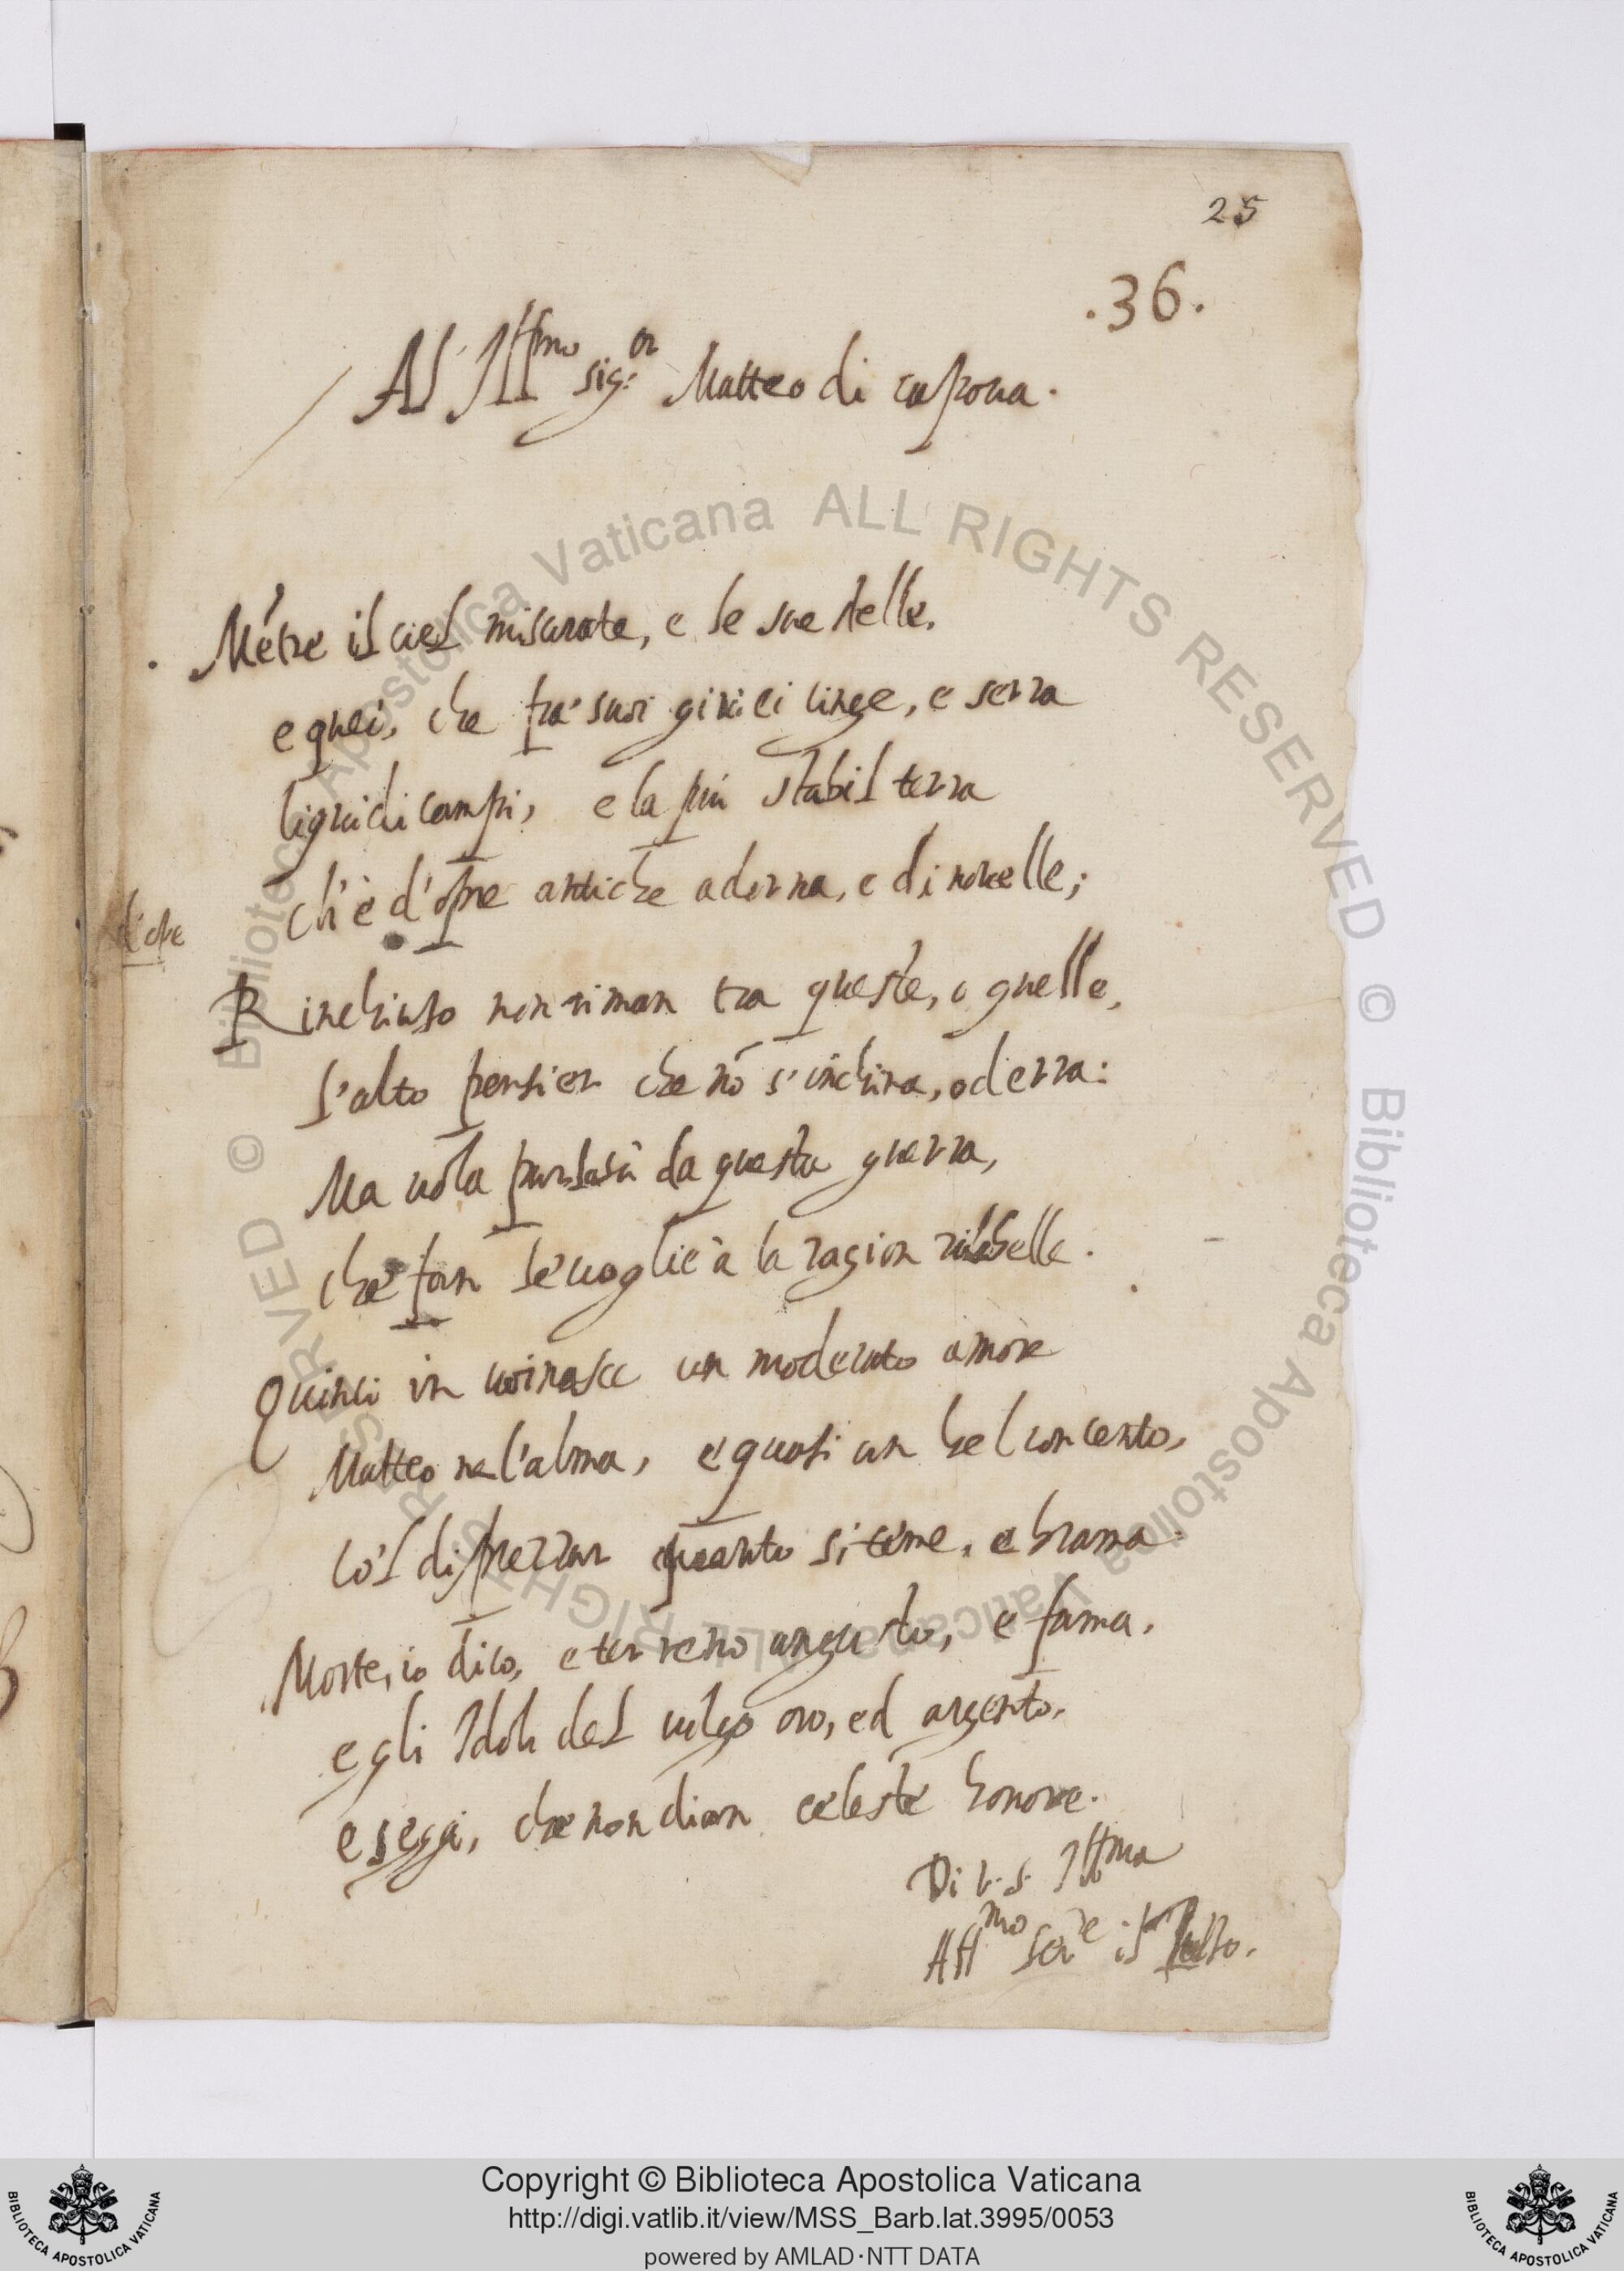 25
.36.
Al Ill.mo sig:or Matteo di capoua.
Mẽtre il ciel misurate, e le sue stelle,
e quei, che fra' suoi giri ei cinge, e serra
liquidi campi, e la più stabil terra
ch'è d'opre antiche adorna, e di nouelle;
Rinchiuso non riman tra queste, o quelle,
l'alto pensier che nõ s'inchina, od erra:
Ma uola pur la su da questa guerra,
che fan le uoglie à la ragion
Quinci in uoi nasce un moderato amore
Matteo ne l'alma, e quasi un bel concento,
co'l disprezzar quanto si teme, e brama.
Morte, io dico, e terreno angusto, e fama,
e gli Idoli del uolgo oro, ed argento,
e seggi, che non dian celeste honore.
Di V. S. Ill.ma
Aff.mo ser.re il Tasso.
© Biblioteca Apostolica Vaticana ALL RIGHTS RESERVED © Biblioteca Apostolica Vaticana ALL RIGHTS RESERVED
Copyright © Biblioteca Apostolica Vaticana
http://digi.vatlib.it/view/MSS_Barb.lat.3995/0053
powered by AMLAD·NTT DATA
BIBLIOTECA APOSTOLICA VATICANA
BIBLIOTECA APOSTOLICA VATICANA